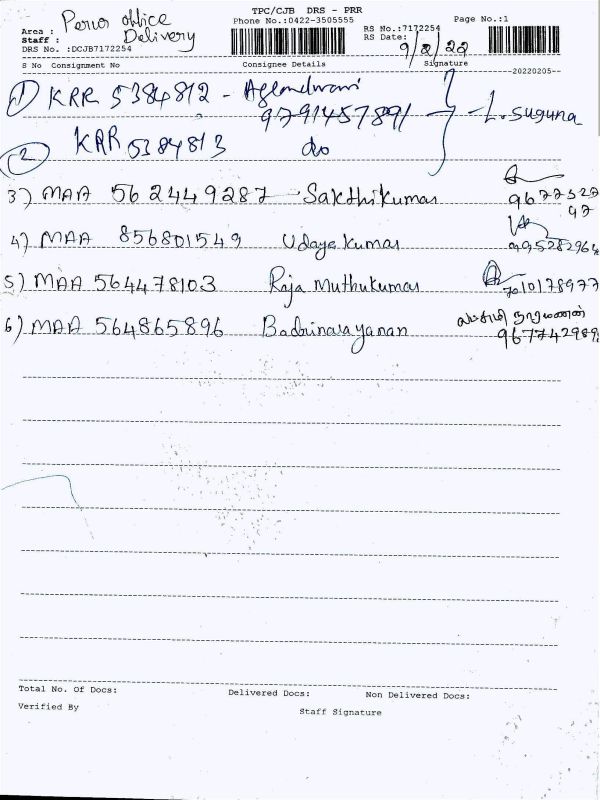 TPC/CJB DRS - PRR
Phone No.:0422-3505555
Page No.:1
Area : office
Staff : Delivery
DRS No. :DCJB7172254
RS No.:7172254
RS Date: 9/2/22
S No Consignment No Consignee Details Signature
20220205
1) KRR 5384812 - 9791457891 L. Suguna
2 KRR 5384813 do
3) MAA 562449287 - Sakthikumar 9677527
97
4) MAA 856801549 Udaya Kumar 995282964
5) MAA 564478103 Raja Muthukumar 7010178977
6) MAA 564865896 Badrinarayanan
967742989
Total No. Of Docs: Delivered Docs: Non Delivered Docs:
Verified By Staff Signature